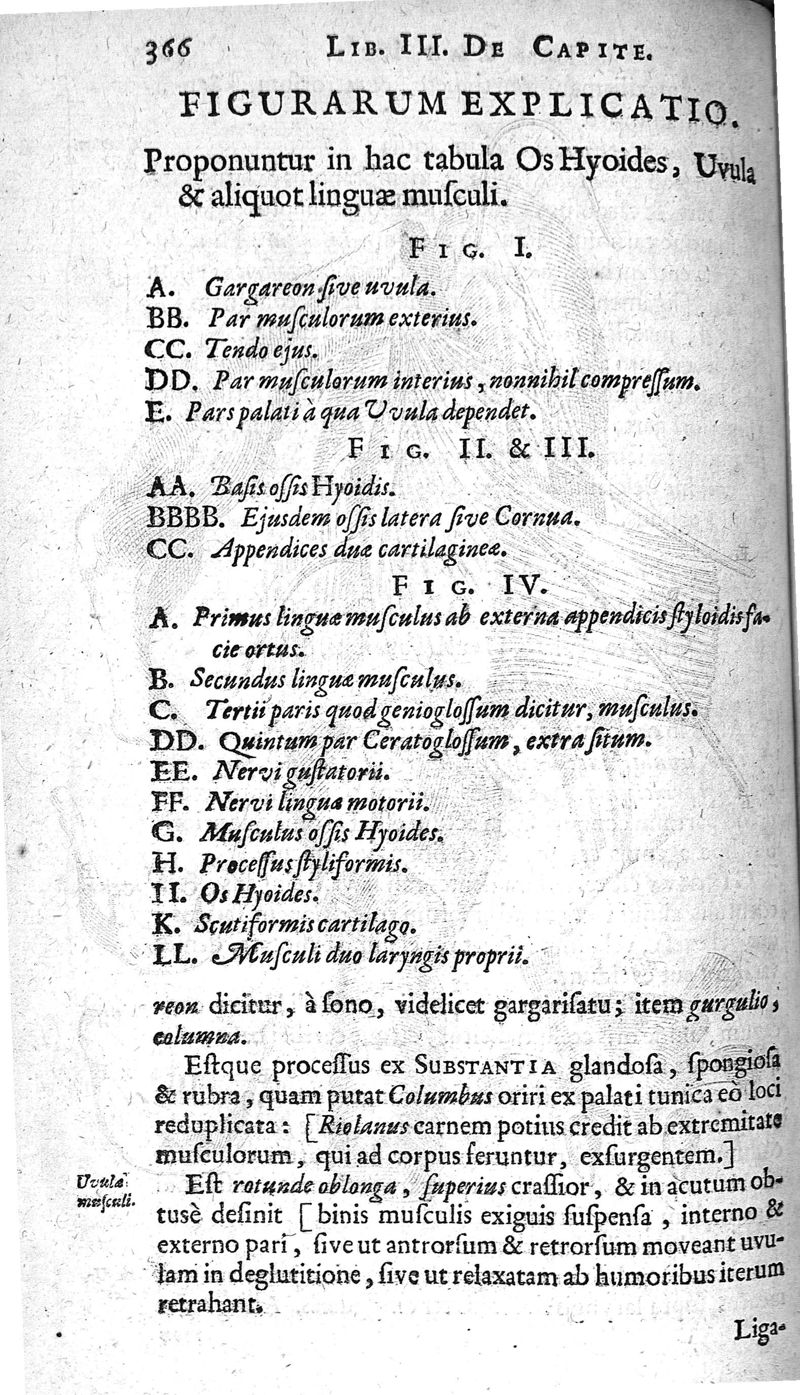 366 LIB. III. DE CAPITE.
FIGURARUM EXPLICATIO.
Proponuntur in hac tabula Os Hyoides, Uvula
& aliquot linguæ muſculi.
FIG. I.
A. Gargareon ſive uvula.
BB. Par muſculorum exterius.
CC. Tendo ejus.
DD. Par muſculorum interius, nonnihil compreſſum.
E. Pars palati à qua Uvula dependet.
FIG. II. & III.
AA. Baſis oſſis Hyoidis.
BBBB. Ejusdem oſſis latera ſive Cornua.
CC. Appendices duæ cartilagineæ.
FIG. IV.
A. Primus linguæ muſculus ab externa appendicis ſtyloidis fa-
cie ortus.
B. Secundus linguæ muſculus.
C. Tertii paris quod genioglossum dicitur, muſculus.
DD. Quintum par Ceratogloſſum, extra ſitum.
EE. Nervi guſtatorii.
FF. Nervi linguæ motorii.
G. Muſculus oſſis Hyoides.
H. Proceſſus ſtyliformis.
II. Os Hyoides.
K. Scutiformis cartilago.
LL. Muſculi duo laryngis proprii.
reon dicitur, à ſono, videlicet gargariſatu; item gurgulio,
columna.
Eſtque proceſſus ex SUBSTANTIA glandoſa, ſpongioſa
& rubra, quam putat Columbus oriri ex palati tunica eò loci
reduplicata: [Riolanus carnem potius credit ab extremitate
muſculorum, qui ad corpus feruntur, exſurgentem.]
Uvulæ
muſculi.
Eſt rotunde oblonga, ſuperius craſſior, & in acutum ob-
tusè deſinit [binis muſculis exiguis ſuſpenſa, interno &
externo pari, ſive ut antrorſum & retrorſum moveant uvu-
lam in deglutitione, ſive ut relaxatam ab humoribus iterum
retrahant.
Liga-